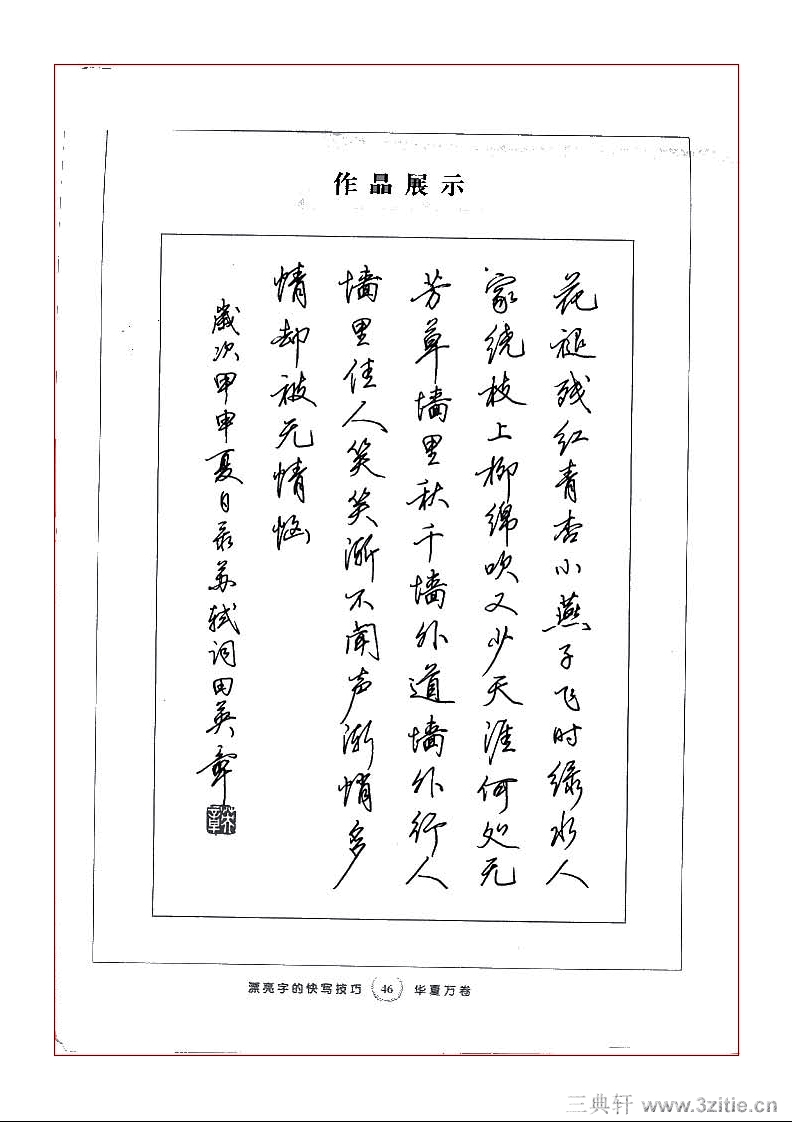 作品展示
花褪残红青杏小燕子飞时绿水人
家绕枝上柳绵吹又少天涯何处无
芳草墙里秋千墙外道墙外行人
墙里佳人笑笑渐不闻声渐悄多
情却被无情恼
歲次甲申夏日录苏轼词田英章
英章
漂亮字的快写技巧 46 华夏万卷
三典轩 www.3zitie.cn